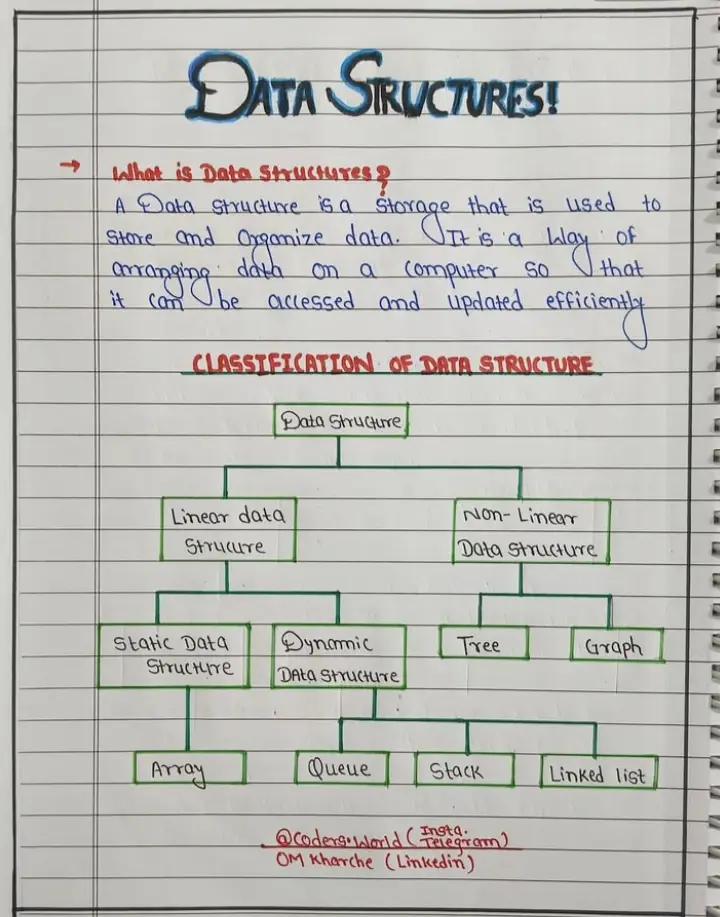 DATA STRUCTURES!
→ What is Data Structures?
A Data structure is a storage that is used to
store and organize data. It is a way of
arranging data on a computer so that
it can be accessed and updated efficiently
CLASSIFICATION OF DATA STRUCTURE
Data Structure
Linear data
Strucure
Non-Linear
Data structure
Static Data
Structure
Dynamic
Data structure
Tree
Graph
Array
Queue
Stack
Linked list
@Coders.World (Insta. Telegram)
OM Kharche (Linkedin)